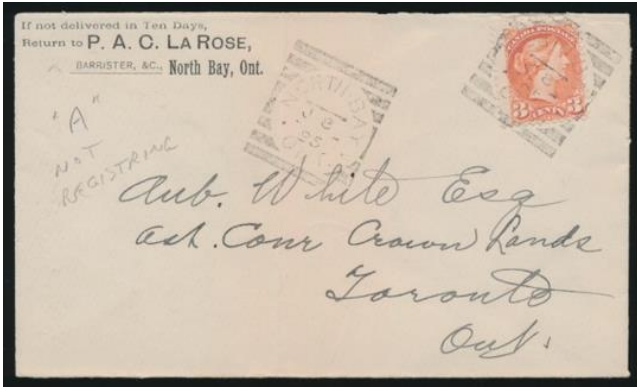 If not delivered in Ten Days,
Return to P. A. C. LA ROSE,
BARRISTER, &C., North Bay, Ont.
CANADA POSTAGE
3 CENTS 3
NORTH BAY
95
"A"
NOT
REGISTRING
Aub. White Esq
Ast. Comr Crown Lands
Toronto
Ont.